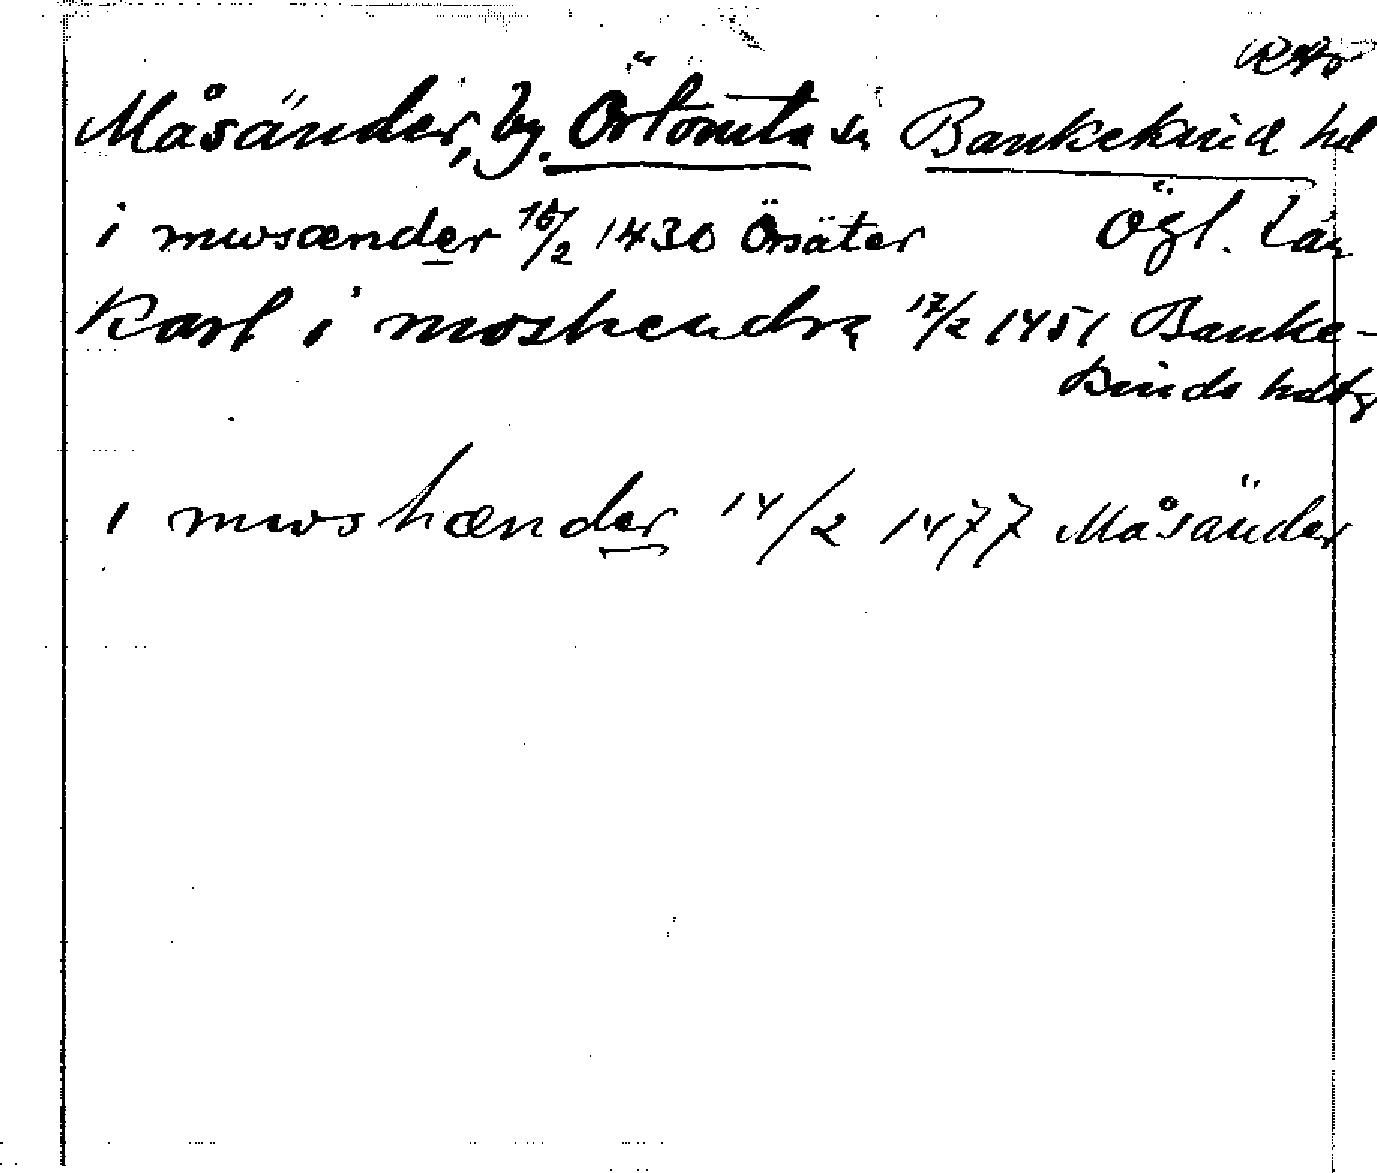 Måsänder, by. Örtomta sn Bankekind hd
i mwsænder 16/2 1430 Örsäter Ögl. Län
Karl i moshendra 17/2 1451 Banke-
kinds hdtg
i mwshænder 14/2 1477 Måsänder